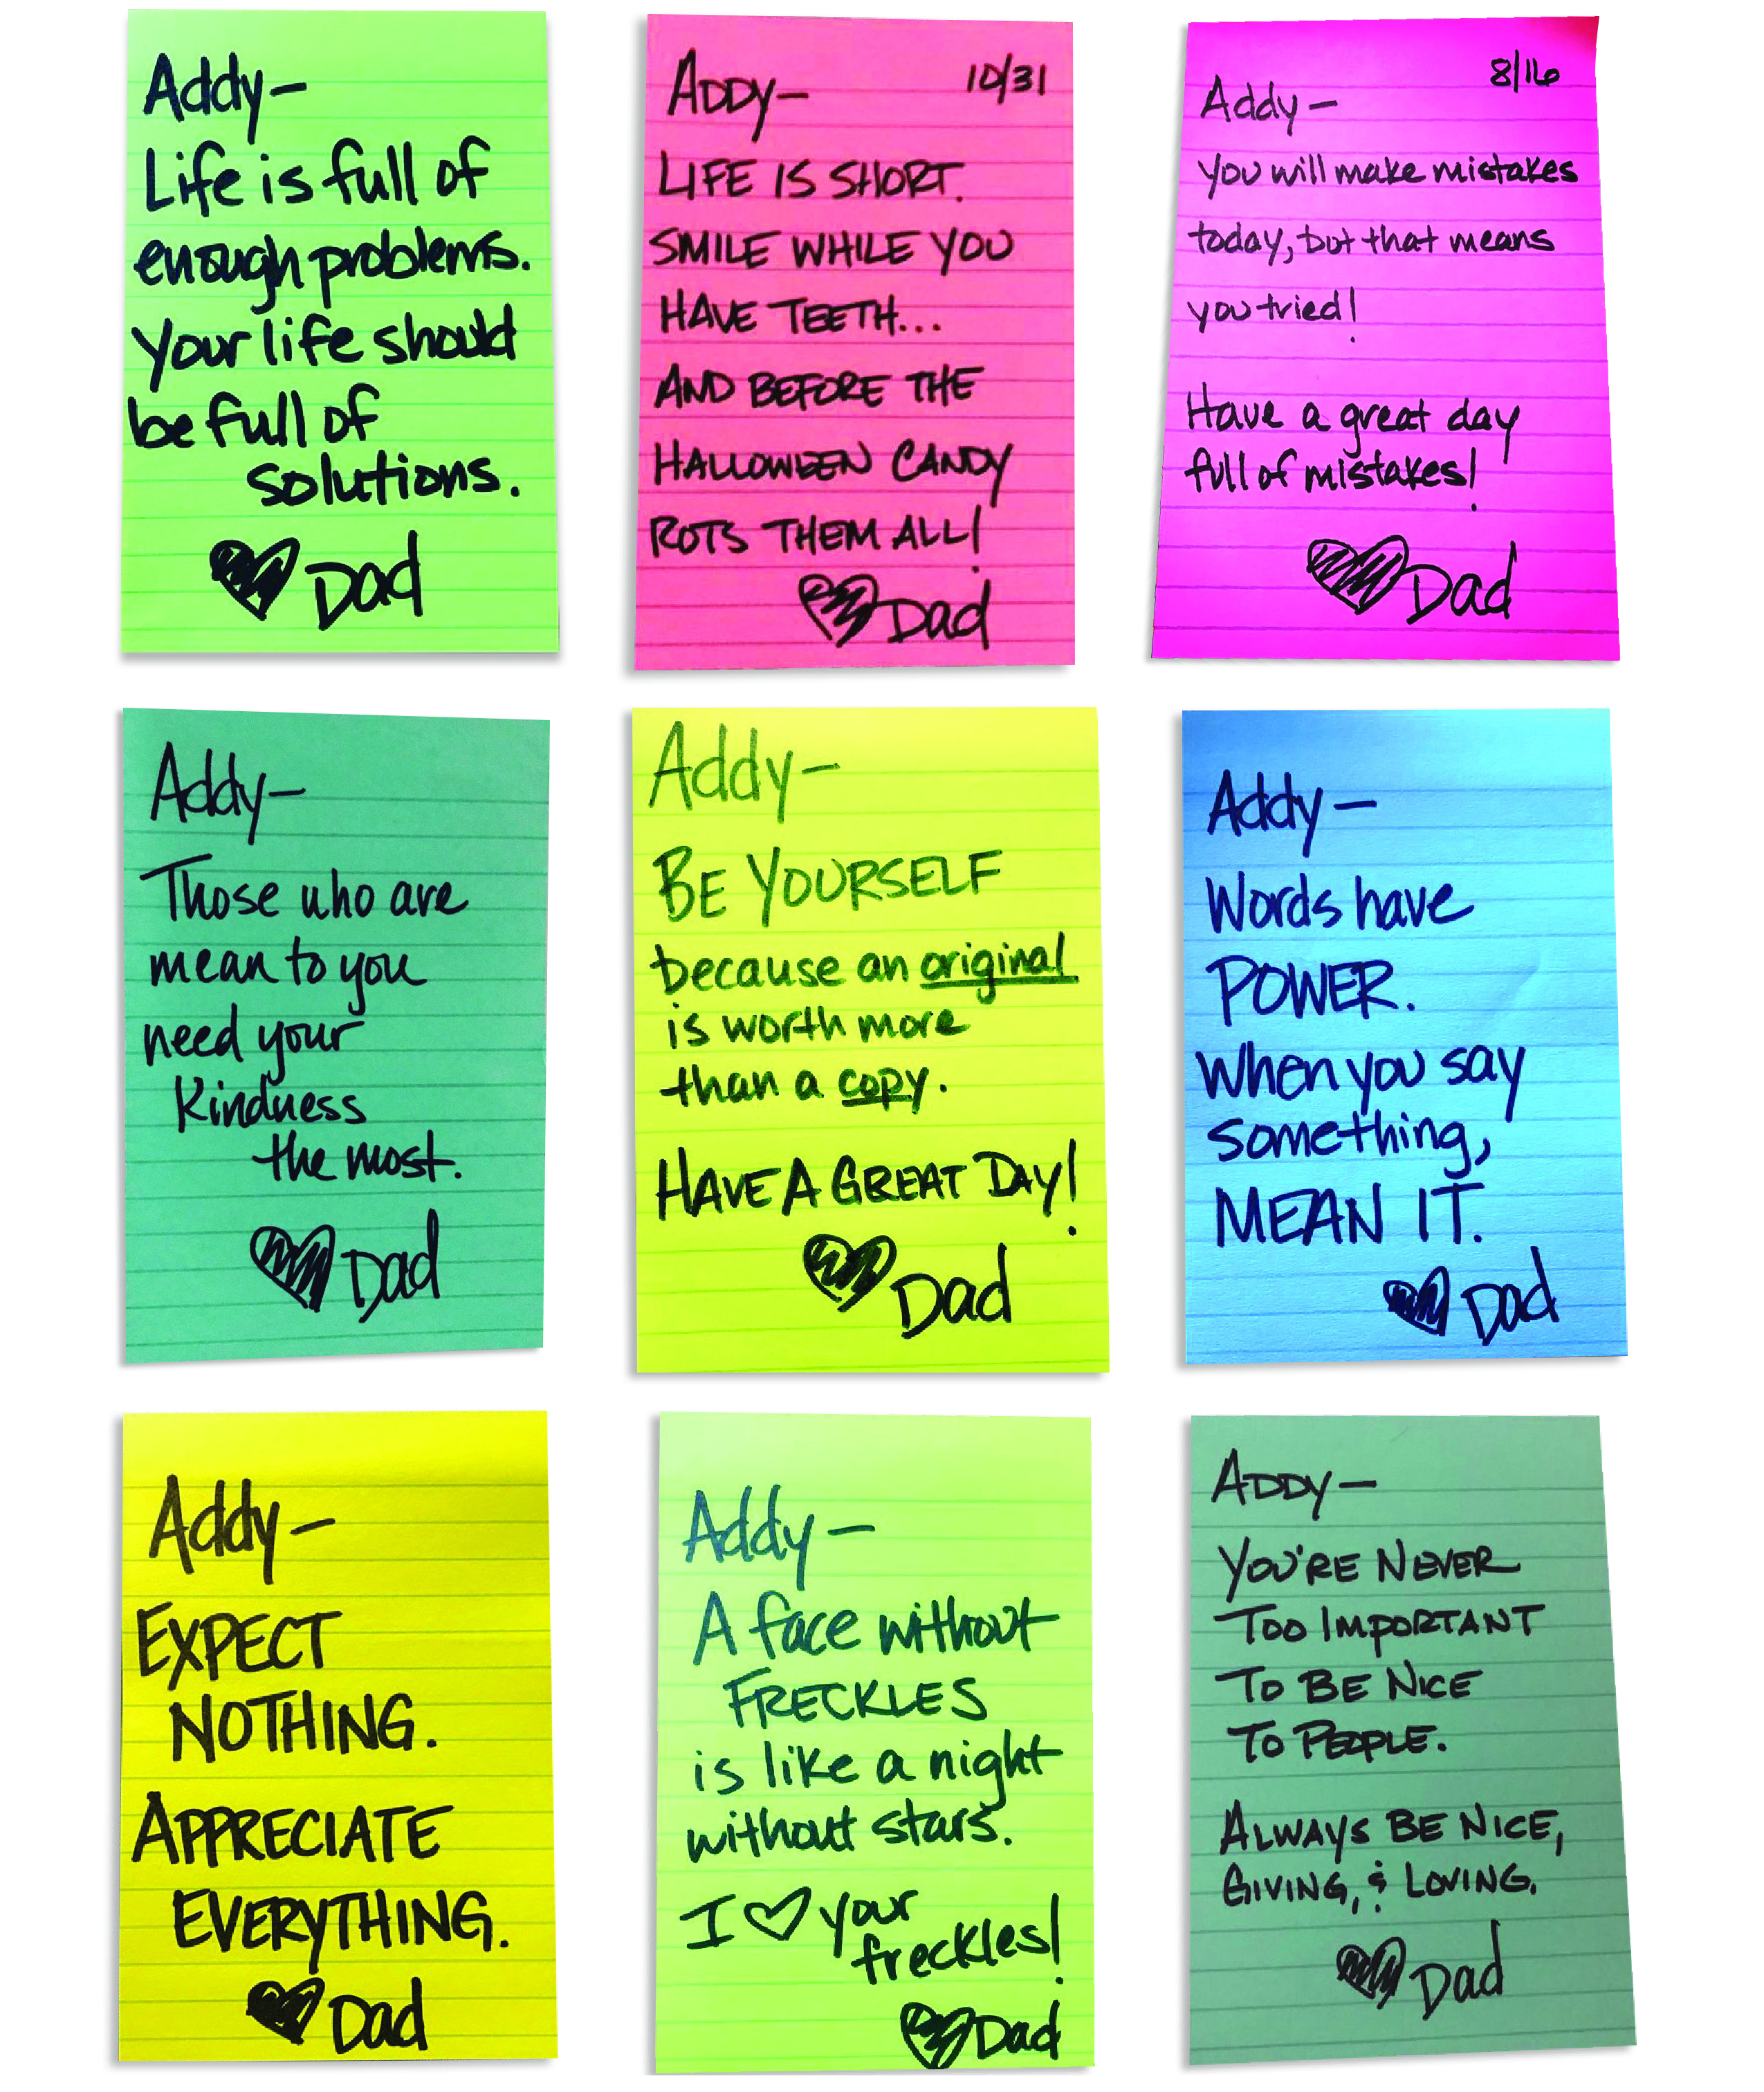 Addy-
Life is full of
enough problems.
Your life should
be full of
solutions.
♥ Dad
ADDY- 10/31
LIFE IS SHORT.
SMILE WHILE YOU
HAVE TEETH...
AND BEFORE THE
HALLOWEEN CANDY
ROTS THEM ALL!
♥ Dad
8/16
Addy-
You will make mistakes
today, but that means
you tried!
Have a great day
full of mistakes!
♥ Dad
Addy-
Those who are
mean to you
need your
kindness
the most.
♥ Dad
Addy-
BE YOURSELF
because an original
is worth more
than a copy.
HAVE A GREAT DAY!
♥ Dad
Addy-
Words have
POWER.
When you say
something,
MEAN IT.
♥ Dad
Addy-
EXPECT
NOTHING.
APPRECIATE
EVERYTHING.
♥ Dad
Addy-
A face without
FRECKLES
is like a night
without stars.
I ♡ your
freckles!
♥ Dad
ADDY-
YOU'RE NEVER
TOO IMPORTANT
TO BE NICE
TO PEOPLE.
ALWAYS BE NICE,
GIVING, & LOVING.
♥ Dad